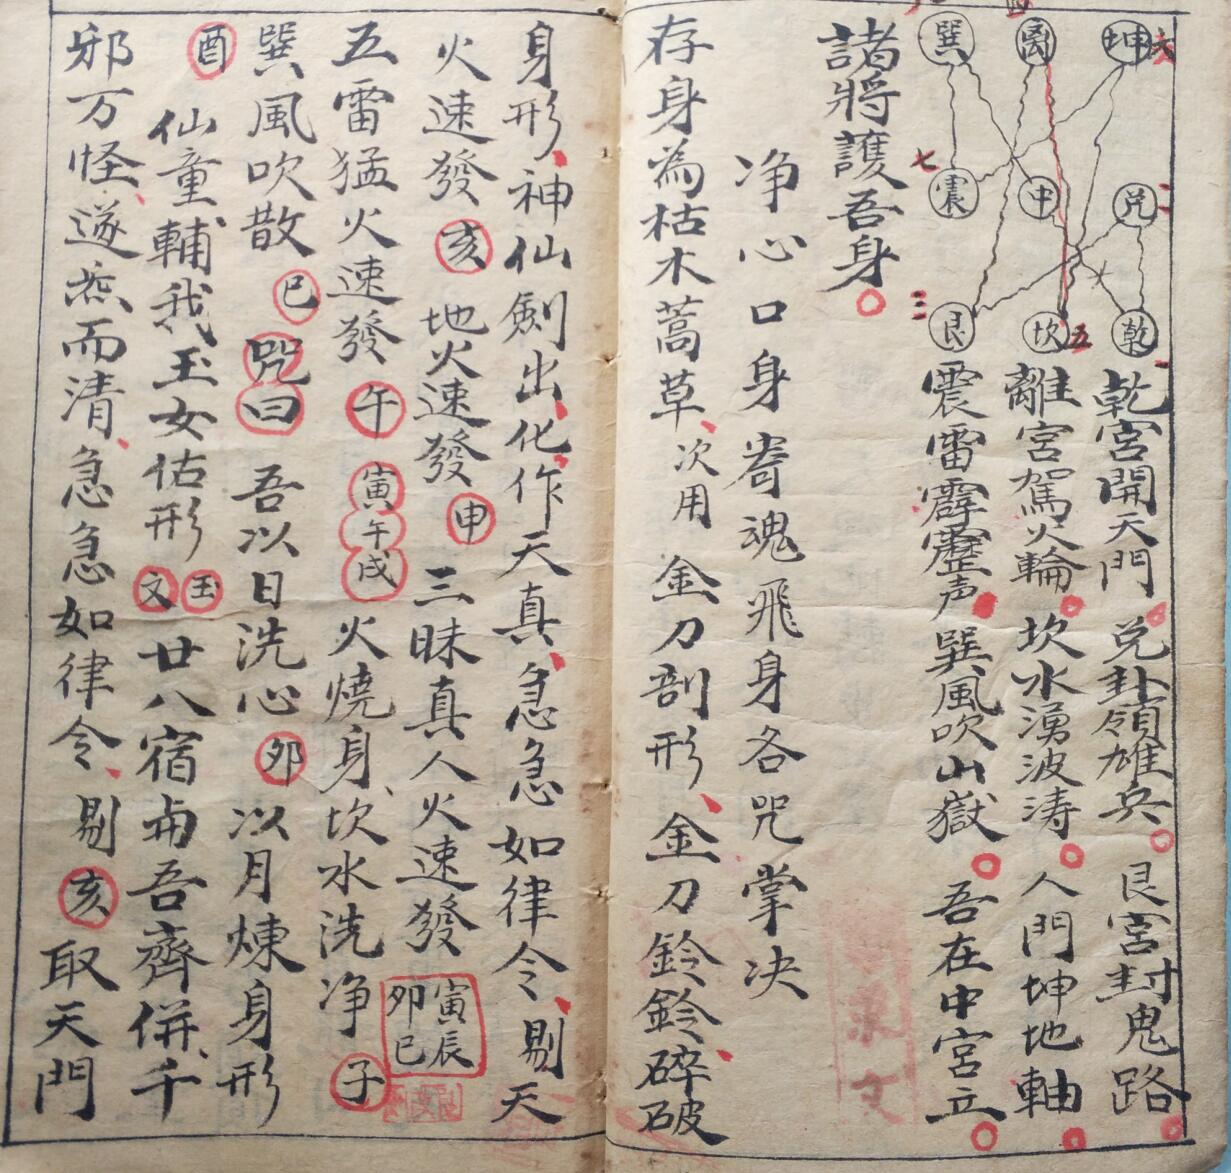 巽 離 坤 六
七 震 中 兌 二
三 艮 坎 五 乾 一
乾宮開天門 兌卦領雄兵 艮宮封鬼路
離宮駕火輪 坎水湧波涛 人門坤地軸
震雷霹靂声 巽風吹山獄 吾在中宮立
諸將護吾身
净心口身寄魂飛身各咒掌决
存身為枯木蒿草、次用金刀剖形、金刀鈴鈴碎破
身形、神仙劍出、化作天真、急急如律令、剔天
火速發 亥 地火速發 申 三昧真人火速發 寅辰卯巳
五雷猛火速發 午 寅午戌 火燒身、坎水洗净 子
巽風吹散 巳 咒曰 吾以日洗心 卯 以月煉身形
酉 仙童輔我玉女佑形 玉文 廿八宿与吾齊併、千
邪万怪、遂炁而清、急急如律令、剔 亥 取天門